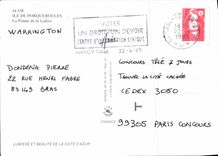 ILE DE PORQUEROLLES
La Pointe de la Galère
VOTER
UN DROIT, UN DEVOIR
CENTRE D'INFORMATION CIVIQUE
NANCY
22-4-95
WARRINGTON
DONDENA PIERRE
22 RUE HENRI FABRE
83149 BRAS
CONCOURS TÉLÉ 2 JOURS
TROUVER LA CITÉ CACHÉE
CEDEX 3050
99305 PARIS CONCOURS
LUMIERE ET BEAUTE DE LA COTE D'AZUR